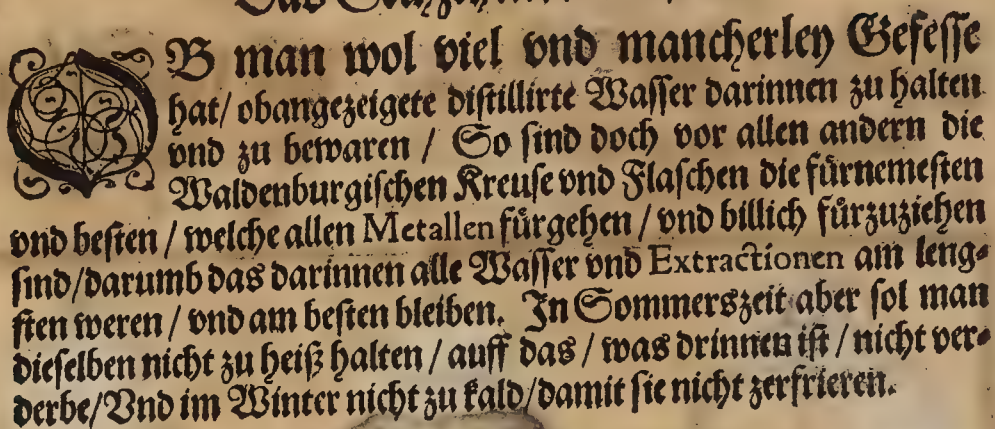 OB man wol viel vnd mancherley Gefesse
hat/ obangezeigete distillirte Wasser darinnen zu halten
vnd zu bewaren / So sind doch vor allen andern die
Waldenburgischen Kreuse vnd Flaschen die fürnemesten
vnd besten / welche allen Metallen fürgehen / vnd billich fürzuziehen
sind/darumb das darinnen alle Wasser vnd Extractionen am leng⸗
sten weren / vnd am besten bleiben. In Sommerszeit aber sol man
dieselben nicht zu heiß halten / auff das / was drinnen ist / nicht ver⸗
derbe/Vnd im Winter nicht zu kald/damit sie nicht zerfrieren.